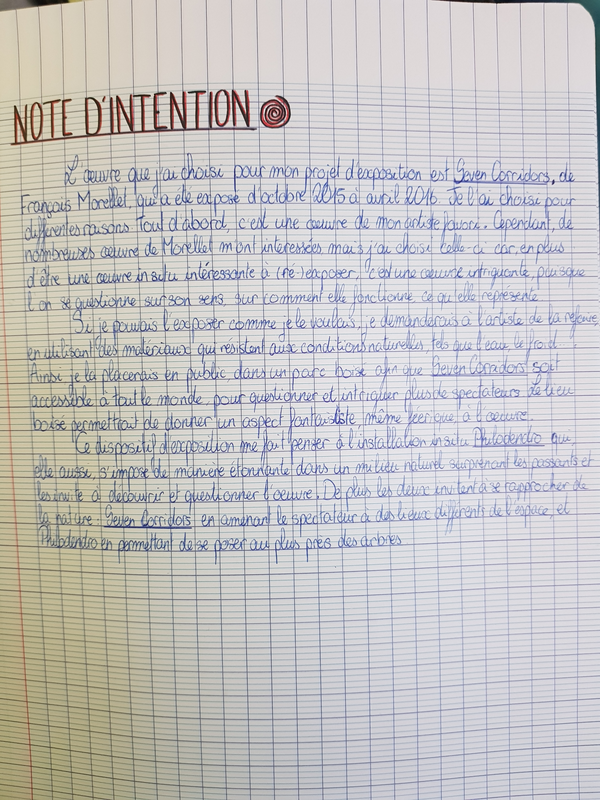 NOTE D'INTENTION
L'œuvre que j'ai choisi pour mon projet d'exposition est Seven Corridors, de
François Morellet, qui a été exposé d'octobre 2015 à avril 2016. Je l'ai choisi pour
différentes raisons. Tout d'abord, c'est une œuvre de mon artiste favori. Cependant, de
nombreuses œuvre de Morellet m'ont intéressées mais j'ai choisi celle-ci car, en plus
d'être une œuvre in situ intéressante à (ré-)exposer, c'est une œuvre intriguante, puisque
l'on se questionne sur son sens, sur comment elle fonctionne, ce qu'elle représente.
Si je pouvais l'exposer comme je le voulais, je demanderais à l'artiste de la refaire,
en utilisant des matériaux qui résistent aux conditions naturelles, tels que l'eau, le froid...
Ainsi je la placerais en public, dans un parc boisé afin que Seven Corradors soit
accessible à tout le monde, pour questionner et intriguer plus de spectateurs. Ce lieu
boisé permettrait de donner un aspect fantaisiste, même féerique, à l'œuvre.
Ce dispositif d'exposition me fait penser à l'installation in situ Philodendro qui,
elle aussi, s'impose de manière étonnante dans un milieu naturel surprenant les passants et
les invite à découvrir et questionner l'œuvre. De plus les deux invitent à se rapprocher de
la nature : Seven Corridors en amenant le spectateur à des lieux différents de l'espace, et
Philodendro en permettant de se poser au plus près des arbres.